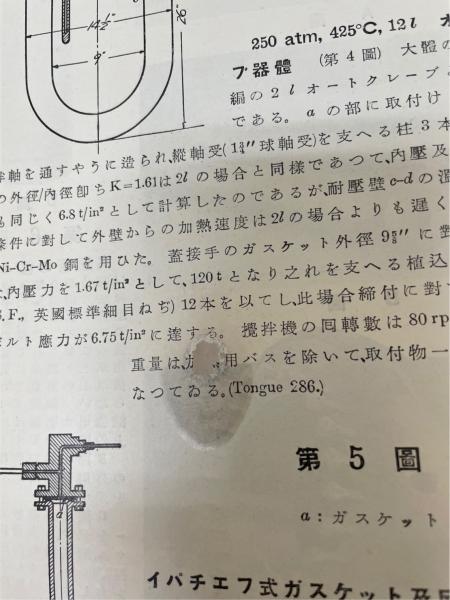 14½″
9″
26″
250 atm, 425°C, 12l オ
ブ器體 (第4圖) 大體の
編の2lオートクレーブ
である。aの部に取付け
軸を通すやうに造られ,縱軸受(1¾″球軸受)を支へる柱3本
の外徑/內徑卽ちK=1.61は2lの場合と同樣であつて,內壓及
同じく6.8t/in²として計算したのであるが,耐壓壁c-dの溫
條件に對して外壁からの加熱速度は2lの場合よりも遲く
Ni-Cr-Mo鋼を用ひた。蓋接手のガスケット外徑9⅝″に對
,內壓力を1.67t/in²として,120tとなり之れを支へる植込
F., 英國標準細目ねぢ)12本を以てし,此場合締付に對す
ルト應力が6.75t/in²に達する。攪拌機の囘轉數は80rp
重量は,用バスを除いて,取付物一
なつてゐる。(Tongue 286.)
第5圖
a
a:ガスケット
イパチエフ式ガスケット及